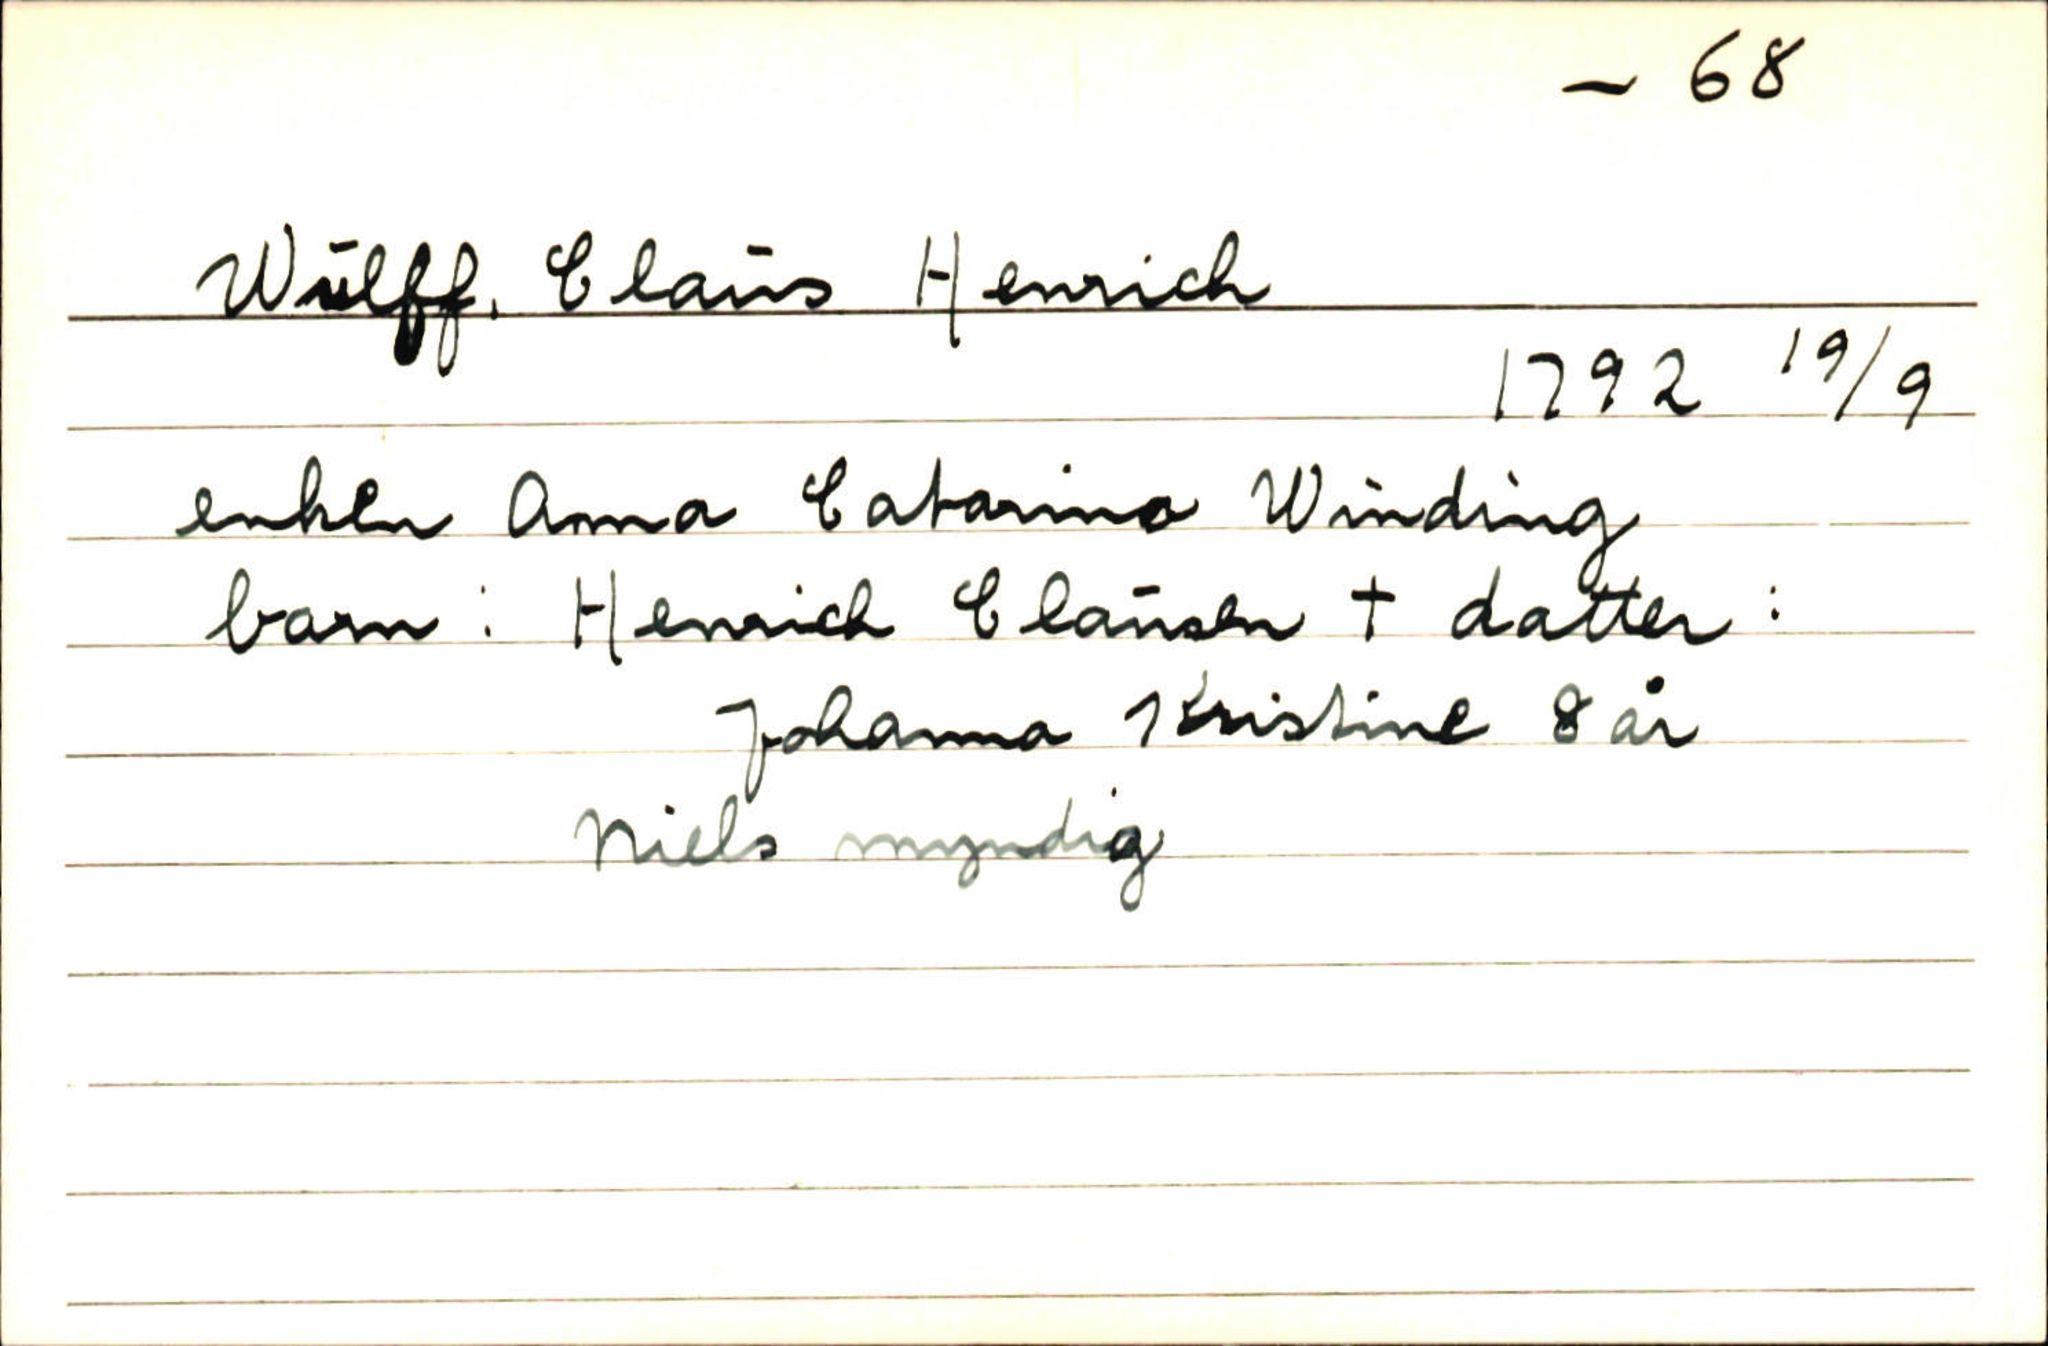 ~ 68
Wūlff, Claūs Henrich
1792 19/9
enken Anna Catarina Winding
barn : Henrich Claūsen † datter :
Johanna Kristine 8 år
Niels myndig